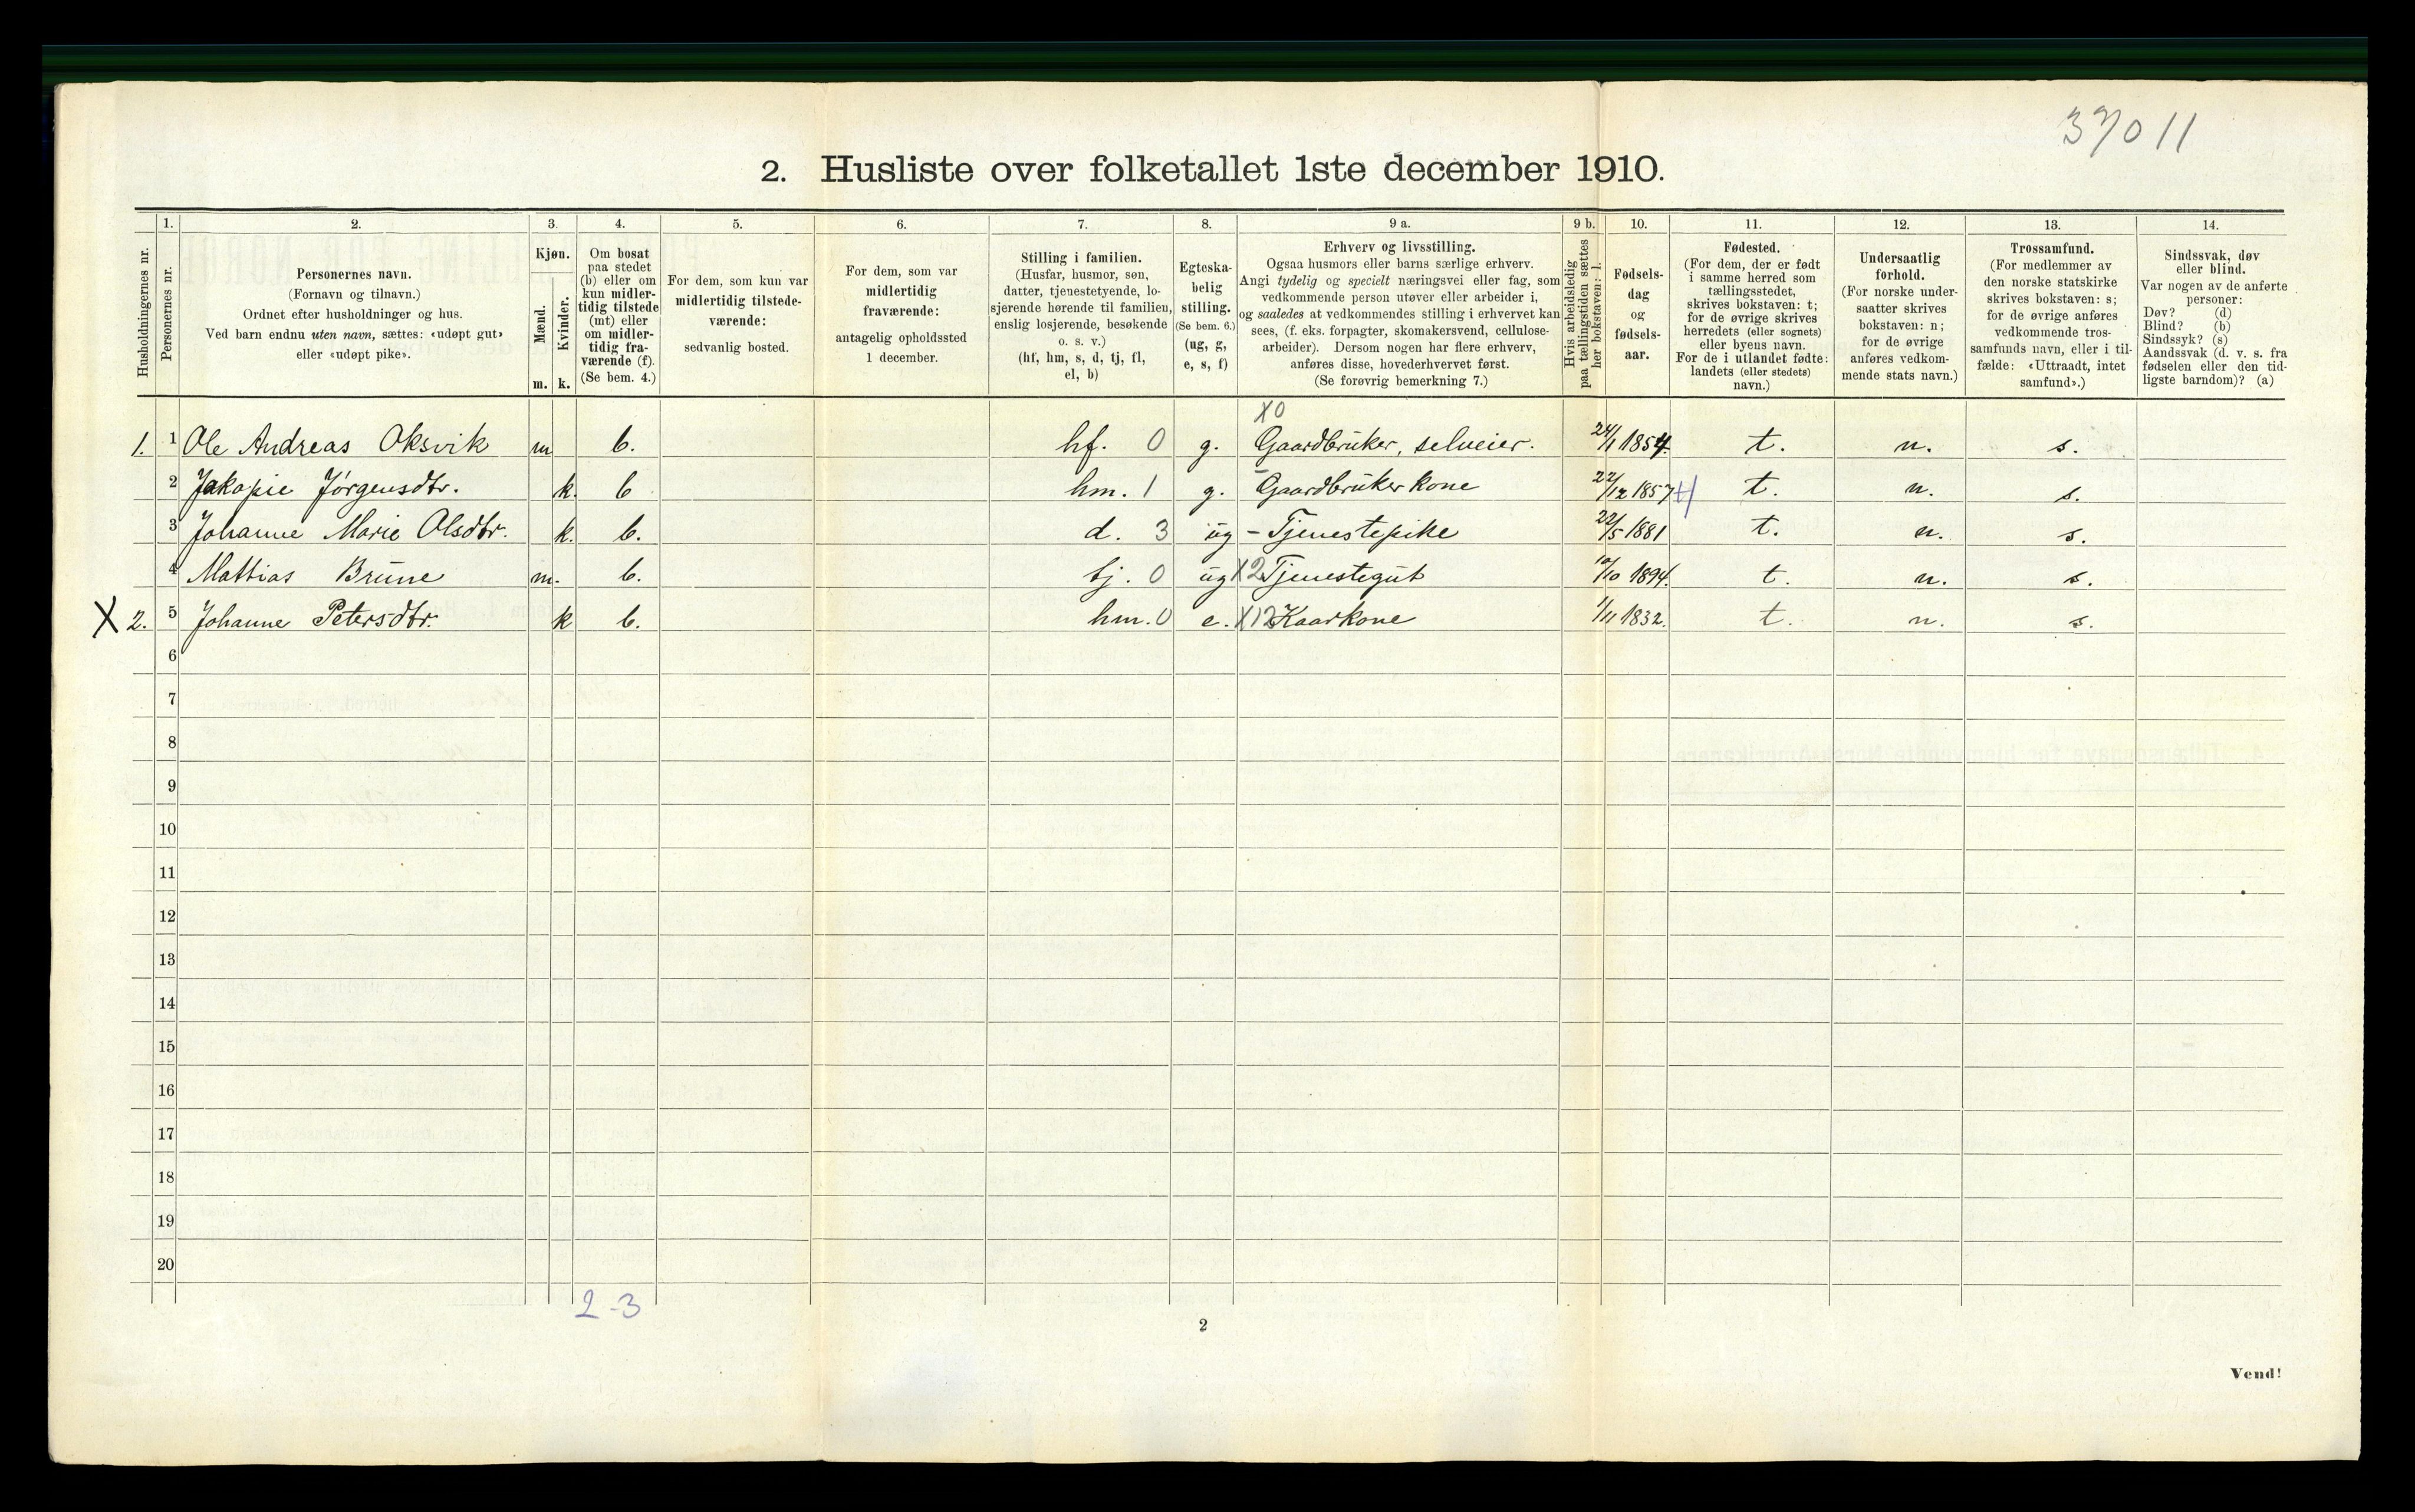 37011
2. Husliste over folketallet 1ste december 1910.
Husholdningernes nr.
1.
Personernes nr.
2.
Personernes navn.
(Fornavn og tilnavn.)
Ordnet efter husholdninger og hus.
Ved barn endnu uten navn, sættes: «udøpt gut»
eller «udøpt pike».
3.
Kjøn.
Mænd.
Kvinder.
m. k.
4.
Om bosat
paa stedet
(b) eller om
kun midler-
tidig tilstede
(mt) eller
om midler-
tidig fra-
værende (f).
(Se bem. 4.)
5.
For dem, som kun var
midlertidig tilstede-
værende:
sedvanlig bosted.
6.
For dem, som var
midlertidig
fraværende:
antagelig opholdssted
1 december.
7.
Stilling i familien.
(Husfar, husmor, søn,
datter, tjenestetyende, lo-
sjerende hørende til familien,
enslig losjerende, besøkende
o. s. v.)
(hf, hm, s, d, tj, fl,
el, b)
8.
Egteska-
belig
stilling.
(Se bem. 6.)
(ug, g,
e, s, f)
9 a.
Erhverv og livsstilling.
Ogsaa husmors eller barns særlige erhverv.
Angi tydelig og specielt næringsvei eller fag, som
vedkommende person utøver eller arbeider i,
og saaledes at vedkommendes stilling i erhvervet kan
sees, (f. eks. forpagter, skomakersvend, cellulose-
arbeider). Dersom nogen har flere erhverv,
anføres disse, hovederhvervet først.
(Se forøvrig bemerkning 7.)
9 b.
Hvis arbeidsledig
paa tællingstiden sættes
her bokstaven: l.
10.
Fødsels-
dag
og
fødsels-
aar.
11.
Fødested.
(For dem, der er født
i samme herred som
tællingsstedet,
skrives bokstaven: t;
for de øvrige skrives
herredets (eller sognets)
eller byens navn.
For de i utlandet fødte:
landets (eller stedets)
navn.)
12.
Undersaatlig
forhold.
(For norske under-
saatter skrives
bokstaven: n;
for de øvrige
anføres vedkom-
mende stats navn.)
13.
Trossamfund.
(For medlemmer av
den norske statskirke
skrives bokstaven: s;
for de øvrige anføres
vedkommende tros-
samfunds navn, eller i til-
fælde: «Uttraadt, intet
samfund».)
14.
Sindssvak, døv
eller blind.
Var nogen av de anførte
personer:
Døv? (d)
Blind? (b)
Sindssyk? (s)
Aandssvak (d. v. s. fra
fødselen eller den tid-
ligste barndom)? (a)
X0
1. 1 Ole Andreas Oksvik m b. hf. 0 g. Gaardbruker, selveier. 24/1 1854. t. n. s.
2 Jakopie Jørgensdtr. k. b hm. 1 g. - Gaardbruker kone 22/12 1857 t. n. s.
3 Johanne Marie Olsdtr. k. b. d. 3 ug - Tjenestepike 22/5 1881 t. n. s.
4 Mattias Brune m. b. tj. 0 ug X2 Tjenestegut 10/10 1894. t. n. s.
X 2. 5 Johanne Petersdtr. k b. hm. 0 e. X12 Kaarkone 1/11 1832. t. n. s.
6
7
8
9
10
11
12
13
14
15
16
17
18
19
20
2-3
2
Vend!